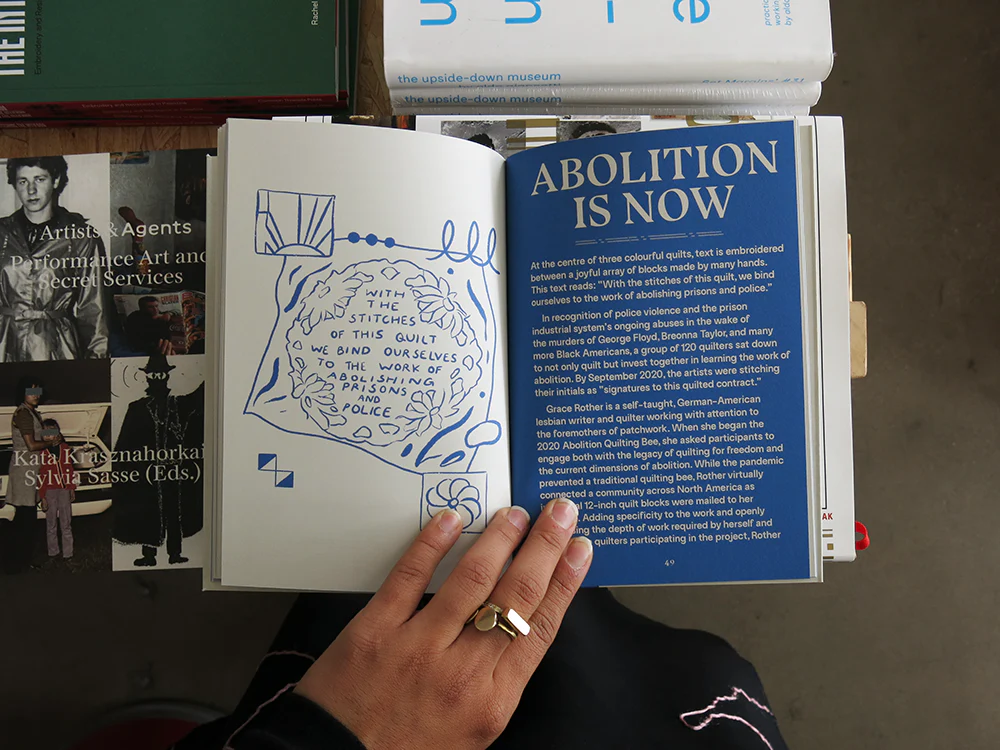 THE
Embroidery and
Rachel
the upside-down museum
the upside-down museum
Artists & Agents
Performance Art and
Secret Services
Kata Krasznahorkai
Sylvia Sasse (Eds.)
WITH
THE
STITCHES
OF THIS QUILT
WE BIND OURSELVES
TO THE WORK OF
ABOLISHING
PRISONS
AND
POLICE
ABOLITION
IS NOW
At the centre of three colourful quilts, text is embroidered
between a joyful array of blocks made by many hands.
This text reads: "With the stitches of this quilt, we bind
ourselves to the work of abolishing prisons and police."
In recognition of police violence and the prison
industrial system's ongoing abuses in the wake of
the murders of George Floyd, Breonna Taylor, and many
more Black Americans, a group of 120 quilters sat down
to not only quilt but invest together in learning the work of
abolition. By September 2020, the artists were stitching
their initials as "signatures to this quilted contract."
Grace Rother is a self-taught, German-American
lesbian writer and quilter working with attention to
the foremothers of patchwork. When she began the
2020 Abolition Quilting Bee, she asked participants to
engage both with the legacy of quilting for freedom and
the current dimensions of abolition. While the pandemic
prevented a traditional quilting bee, Rother virtually
connected a community across North America as
12-inch quilt blocks were mailed to her
Adding specificity to the work and openly
the depth of work required by herself and
quilters participating in the project, Rother
49